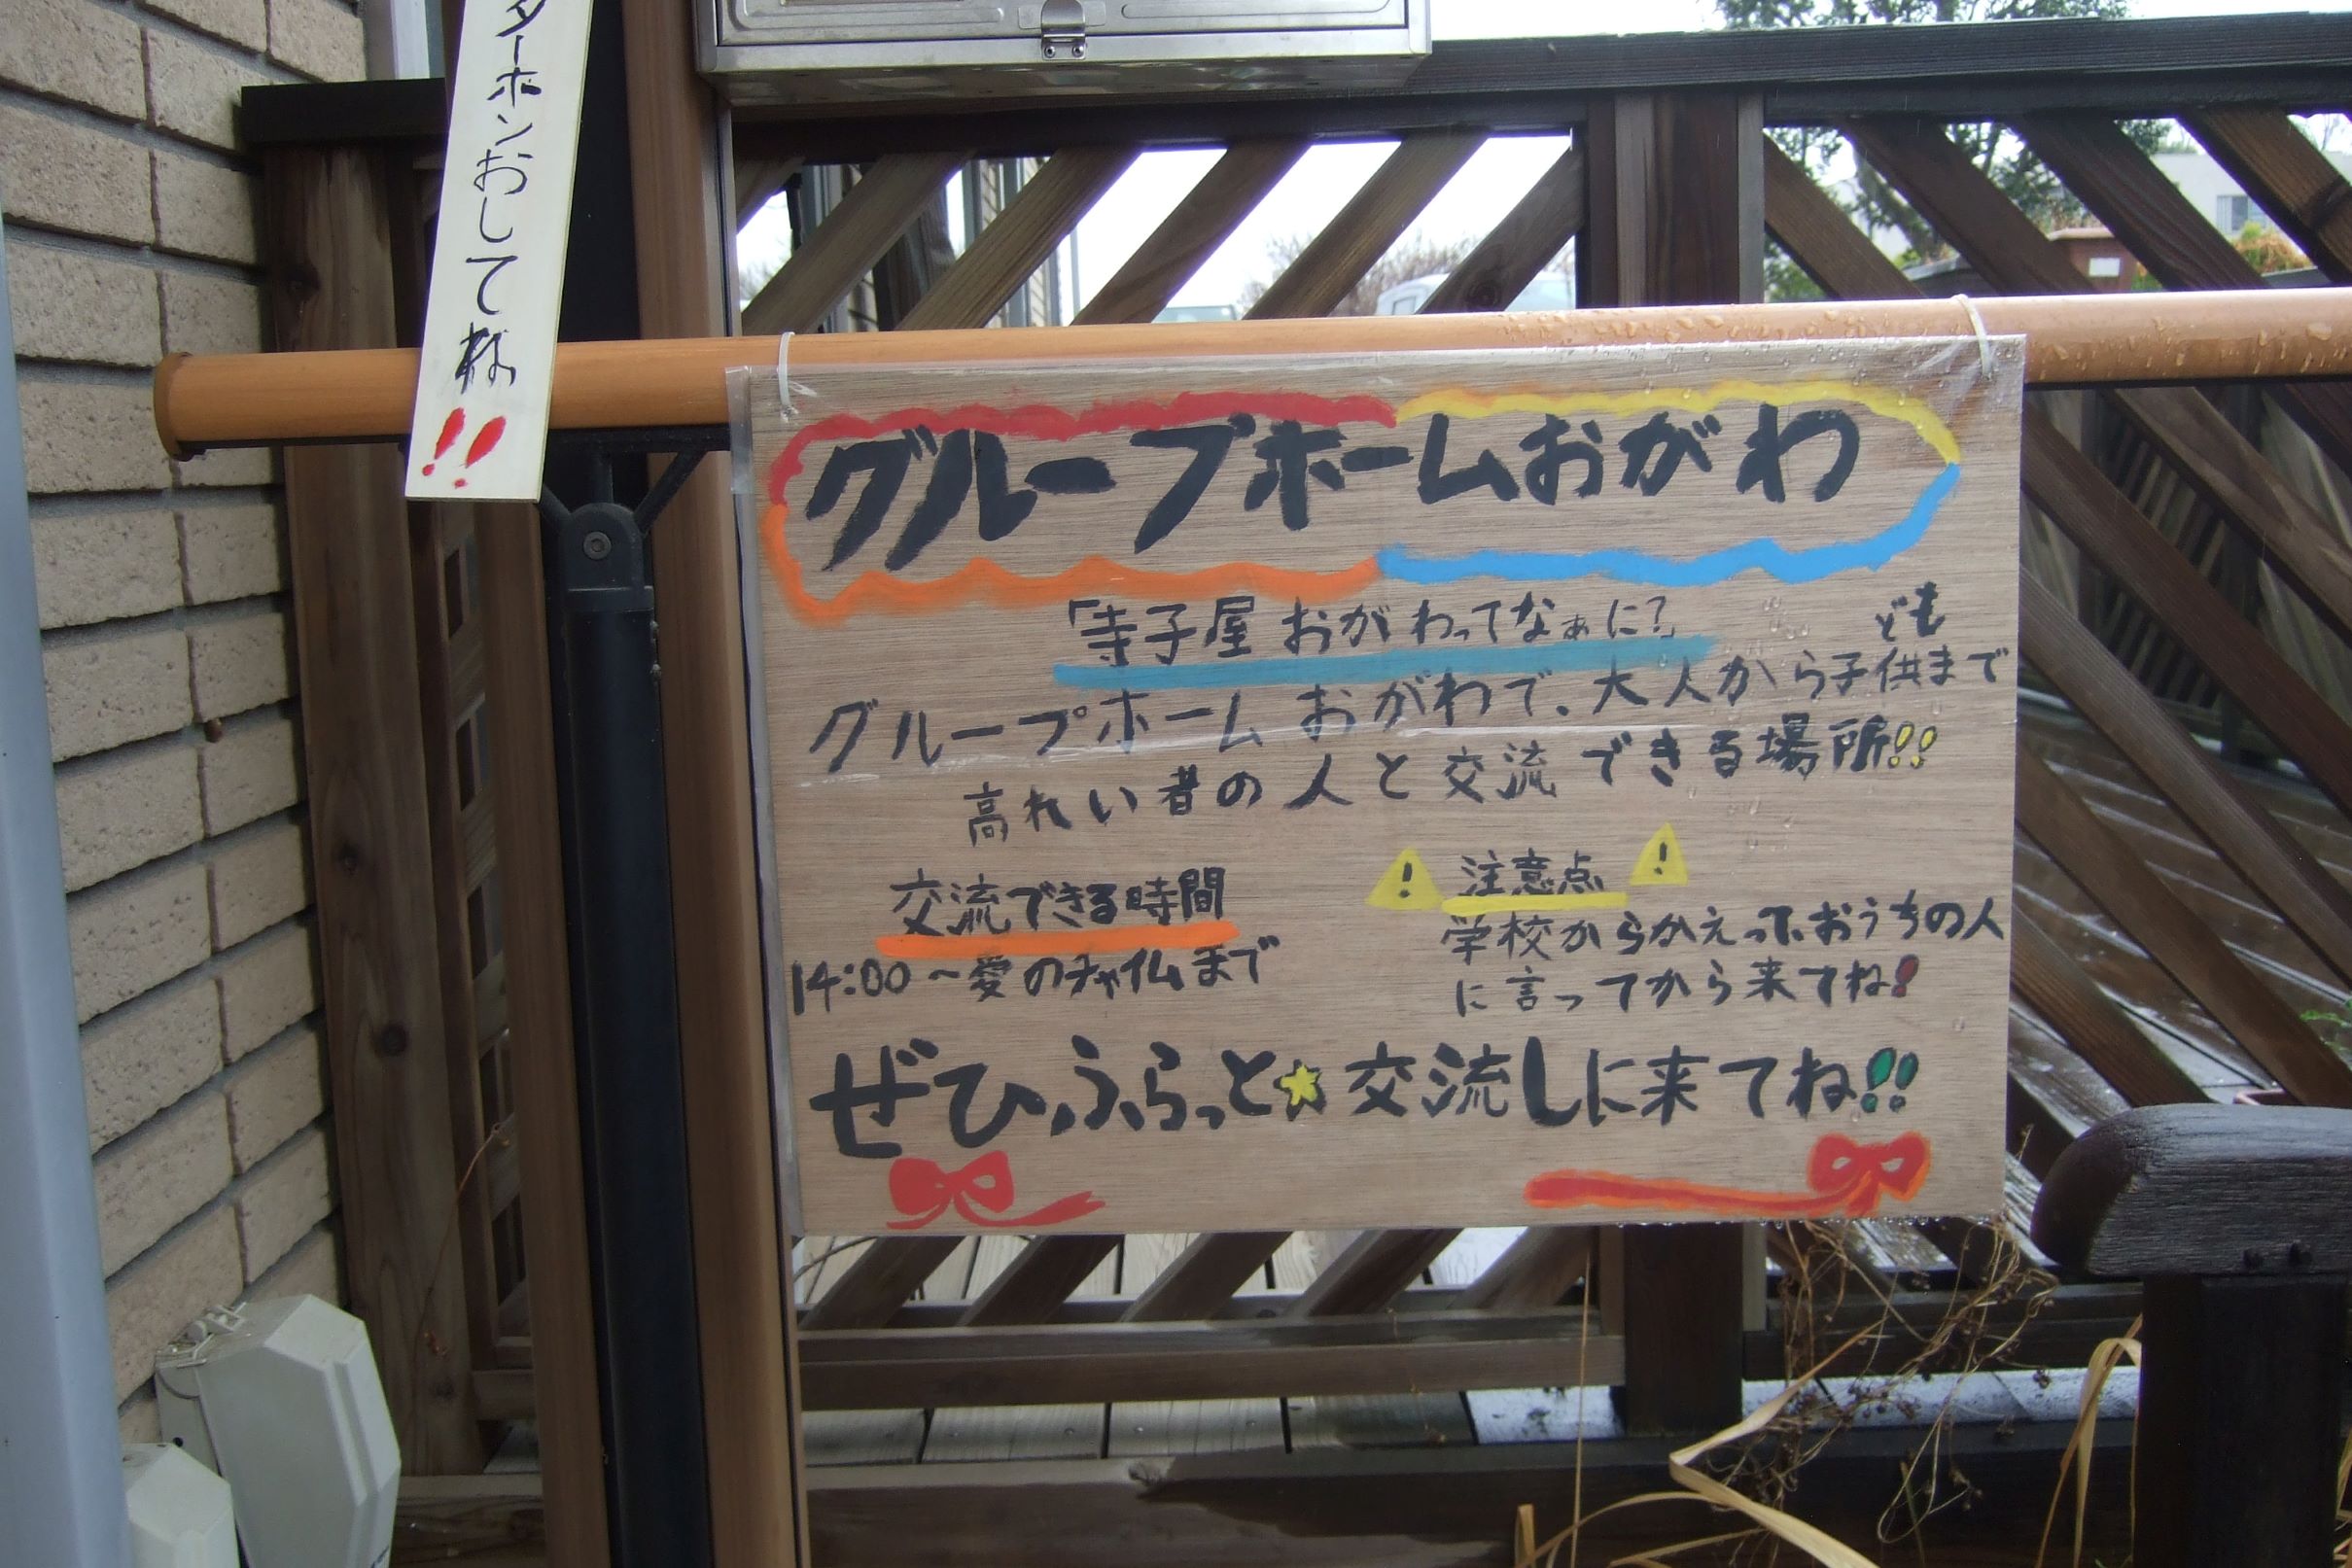 ターホンおしてね!!
グループホームおがわ
「寺子屋 おがわってなぁに?」
ども
グループホーム おがわで、大人から子供まで
高れい者の人と交流できる場所!!
交流できる時間
14:00~愛のチャイムまで
! 注意点 !
学校からかえって、おうちの人
に言ってから来てね!
ぜひふらっと☆交流しに来てね!!